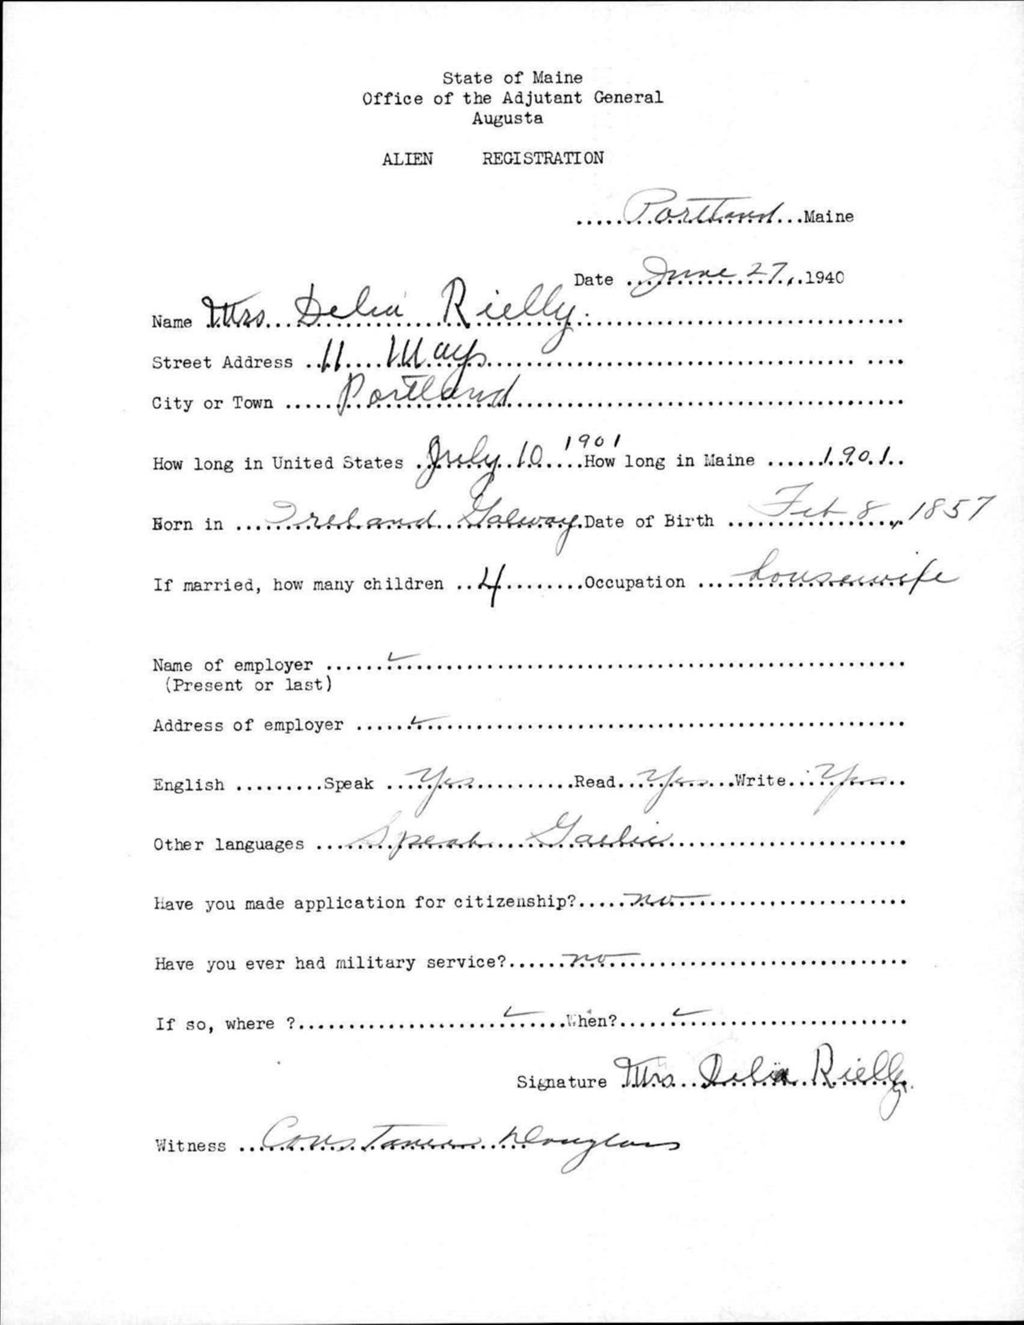 State of Maine
Office of the Adjutant General
Augusta
ALIEN REGISTRATION
.....Portland...Maine
Date ..June 27,.1940
Name Mrs Delia Rielly
Street Address ..11 Mays
City or Town .....Portland
How long in United States .July 10 1901 How long in Maine ......1901..
Born in ...Ireland Galway Date of Birth ...Feb 8, 1857
If married, how many children ..4........Occupation ....housewife
Name of employer ......✓
(Present or last)
Address of employer .....✓
English .........Speak ..Yes..........Read...Yes...Write...Yes..
Other languages ...Speak Gaelic
Have you made application for citizenship?.....no
Have you ever had military service?......no
If so, where ?....................✓.....When?.....✓
Signature Mrs. Delia Rielly.
Witness ..Constance Douglass